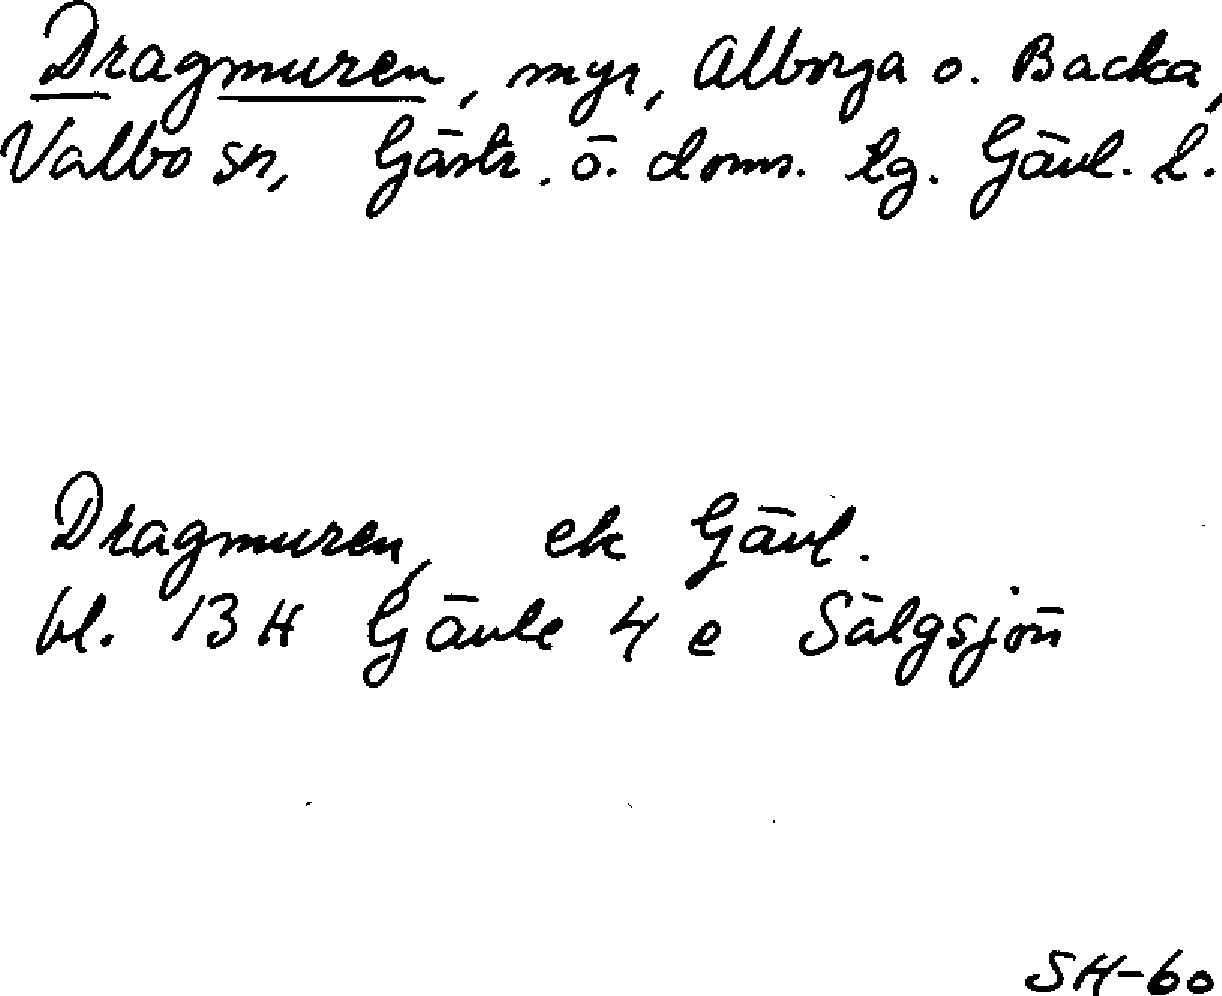 Dragmuren, myr, Alborga o. Backa,
Valbo sn, Gästr. ö. doms. tg. Gävl. l.
Dragmuren, ek Gävl.
bl. 13 H Gävle 4 e Sälgsjön
SH-60